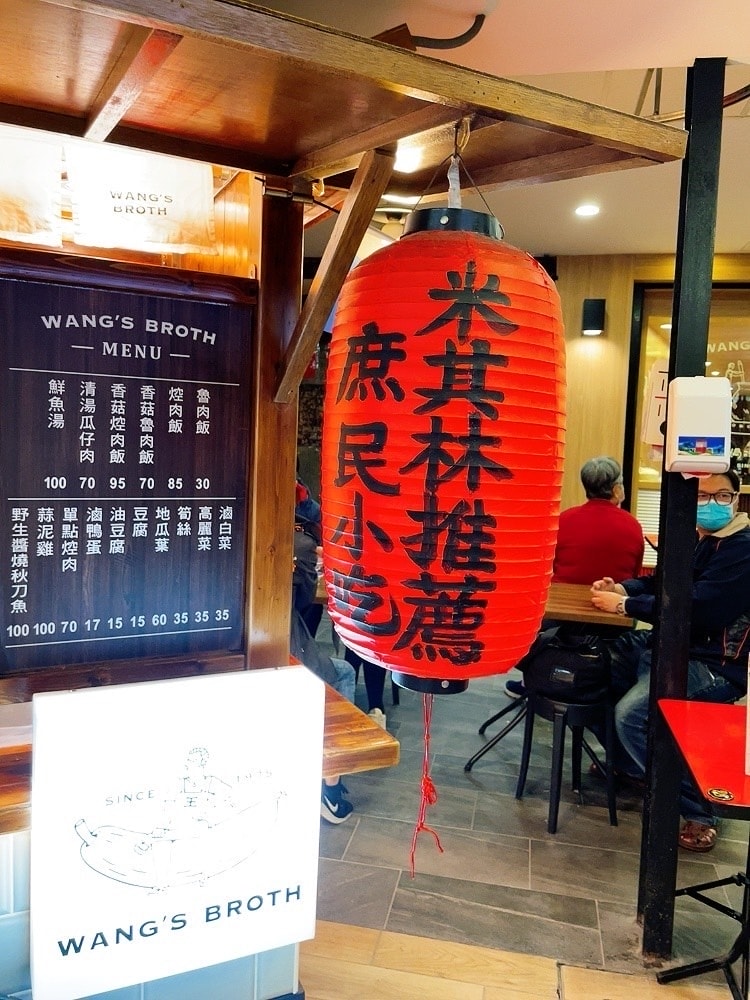 WANG'S
BROTH
WANG'S BROTH
MENU
魯肉飯
焢肉飯
香菇魯肉飯
香菇焢肉飯
清湯瓜仔肉
鮮魚湯
100 70 95 70 85 30
滷白菜
高麗菜
筍絲
地瓜葉
豆腐
油豆腐
滷鴨蛋
單點焢肉
蒜泥雞
野生醬燒秋刀魚
100 100 70 17 15 15 60 35 35 35
米其林推薦
庶民小吃
WANG
SINCE
王
WANG'S BROTH